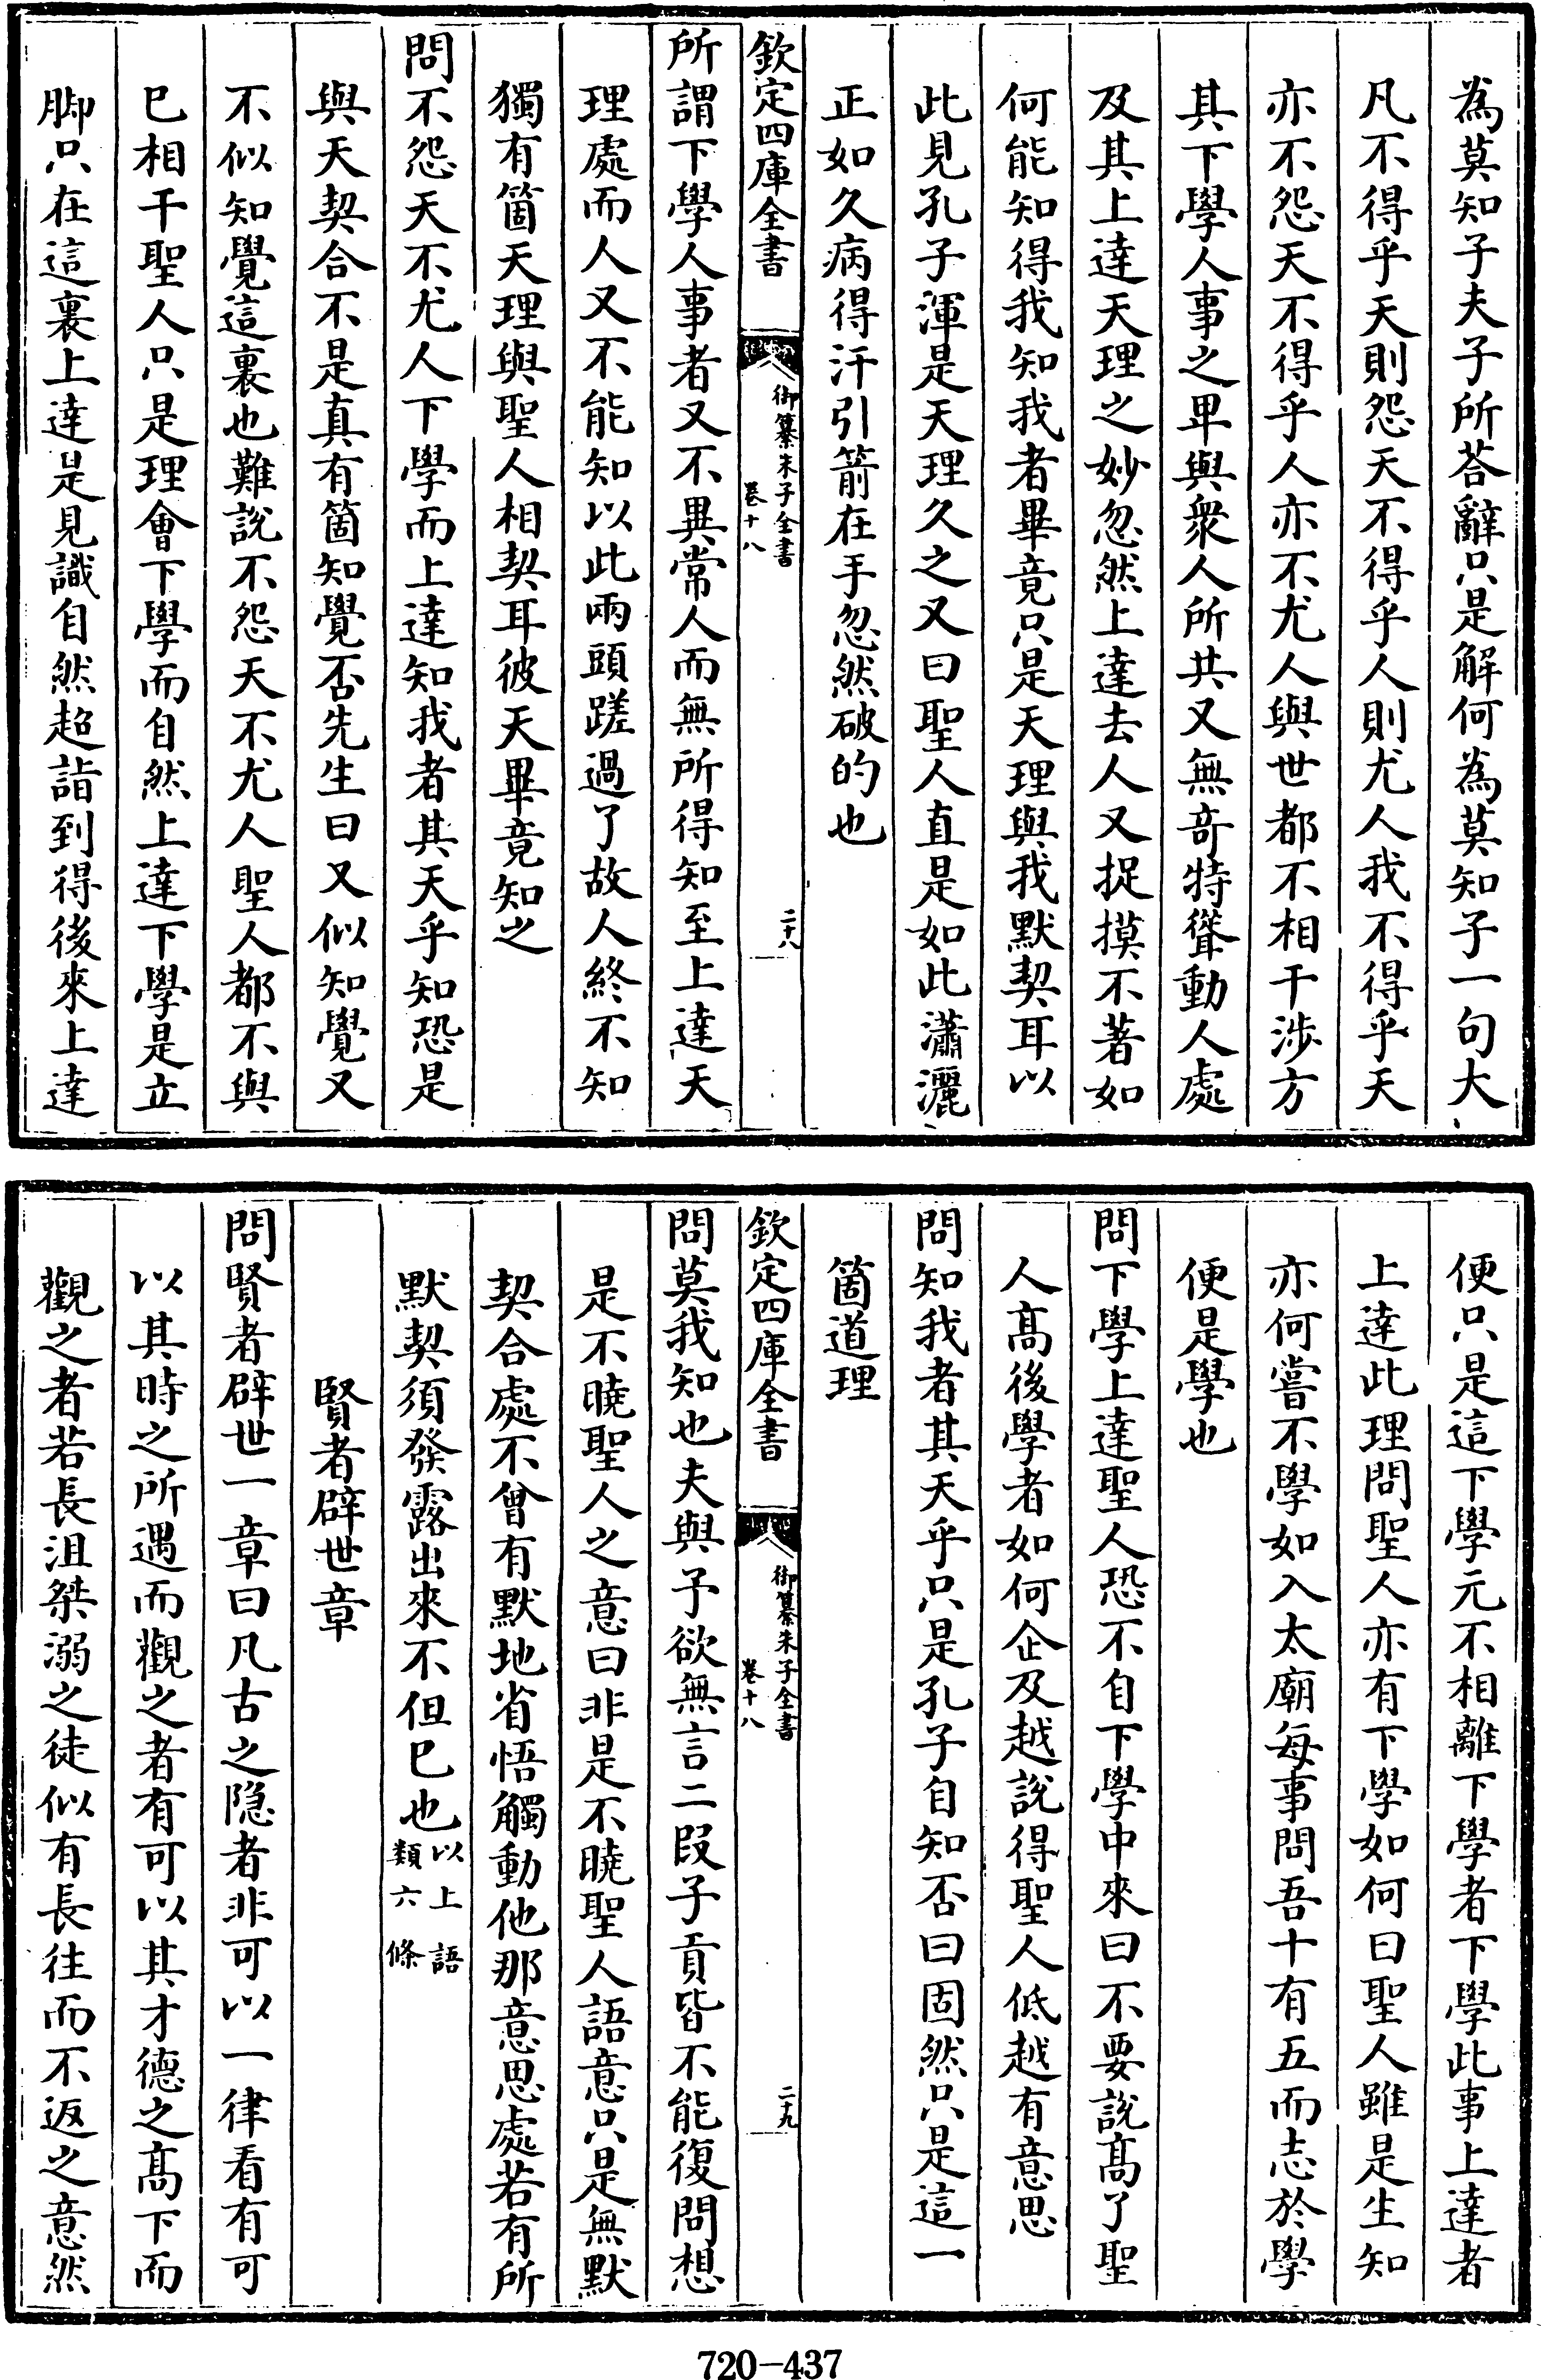 為莫知子夫子所荅辭只是解何為莫知子一句大
凡不得乎天則怨天不得乎人則尤人我不得乎天
亦不怨天不得乎人亦不尤人與世都不相干渉方
其下學人事之卑與衆人所共又無竒特聳動人處
及其上達天理之妙忽然上達去人又捉摸不著如
何能知得我知我者畢竟只是天理與我默契耳以
此見孔子渾是天理久之又曰聖人直是如此瀟灑
正如久病得汗引箭在手忽然破的也
欽定四庫全書
御纂朱子全書
卷十八
二十八
所謂下學人事者又不異常人而無所得知至上達天
理處而人又不能知以此兩頭蹉過了故人終不知
獨有箇天理與聖人相契耳彼天畢竟知之
問不怨天不尤人下學而上達知我者其天乎知恐是
與天契合不是真有箇知覺否先生曰又似知覺又
不似知覺這裏也難說不怨天不尤人聖人都不與
已相干聖人只是理會下學而自然上達下學是立
脚只在這裏上達是見識自然超詣到得後來上達
便只是這下學元不相離下學者下學此事上達者
上達此理問聖人亦有下學如何曰聖人雖是生知
亦何嘗不學如入太廟每事問吾十有五而志於學
便是學也
問下學上達聖人恐不自下學中來曰不要說髙了聖
人髙後學者如何企及越說得聖人低越有意思
問知我者其天乎只是孔子自知否曰固然只是這一
箇道理
欽定四庫全書
御纂朱子全書
卷十八
二十九
問莫我知也夫與予欲無言二段子貢皆不能復問想
是不曉聖人之意曰非是不曉聖人語意只是無默
契合處不曾有默地省悟觸動他那意思處若有所
默契須發露出來不但已也以上語類六條
賢者辟世章
問賢者辟世一章曰凡古之隐者非可以一律看有可
以其時之所遇而觀之者有可以其才德之髙下而
觀之者若長沮桀溺之徒似有長往而不返之意然
720-437